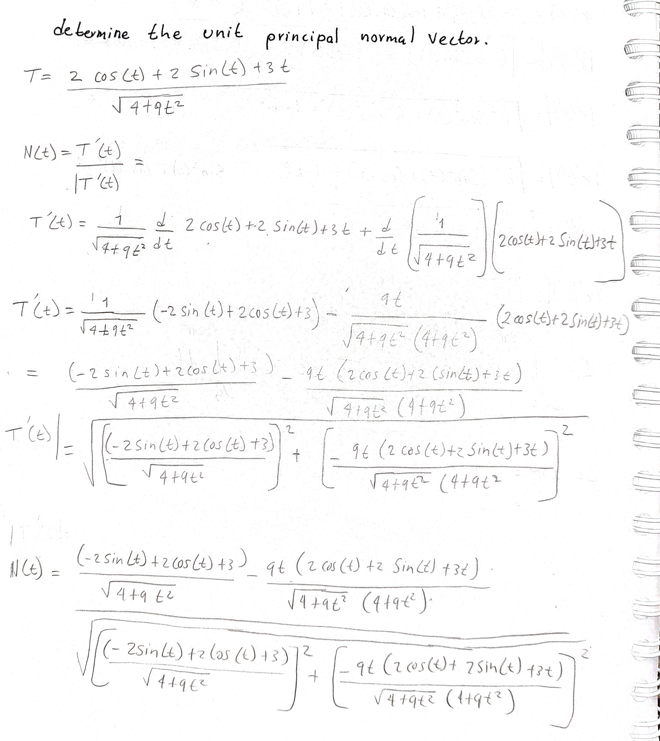 determine the unit principal normal vector.
T = 2 cos(t) + 2 Sin(t) + 3t / √4+9t²
N(t) = T'(t) / |T'(t) =
T'(t) = 1/√4+9t² d/dt 2 cos(t) + 2 Sin(t) + 3t + d/dt [1/√4+9t²] [2cos(t)+2 Sin(t)+3t]
T'(t) = 1/√4+9t² (-2 sin(t) + 2cos(t) + 3) - 9t/√4+9t² (4+9t²) (2cos(t)+2Sin(t)+3t)
= (-2 sin(t) + 2cos(t) + 3)/√4+9t² - 9t (2cos(t)+2 (sin(t)+3t)/√4+9t² (4+9t²)
T'(t)| = √[(-2Sin(t)+2cos(t)+3)/√4+9t²]² + [- 9t (2 cos(t)+2 Sin(t)+3t)/√4+9t² (4+9t²]²
N(t) = (-2sin(t)+2cos(t)+3)/√4+9t² - 9t (2 cos(t) + 2 Sin(t) + 3t)/√4+9t² (4+9t²).
√[(-2Sin(t)+2cos(t)+3)/√4+9t²]² + [-9t (2cos(t)+2Sin(t)+3t)/√4+9t² (4+9t²)]²